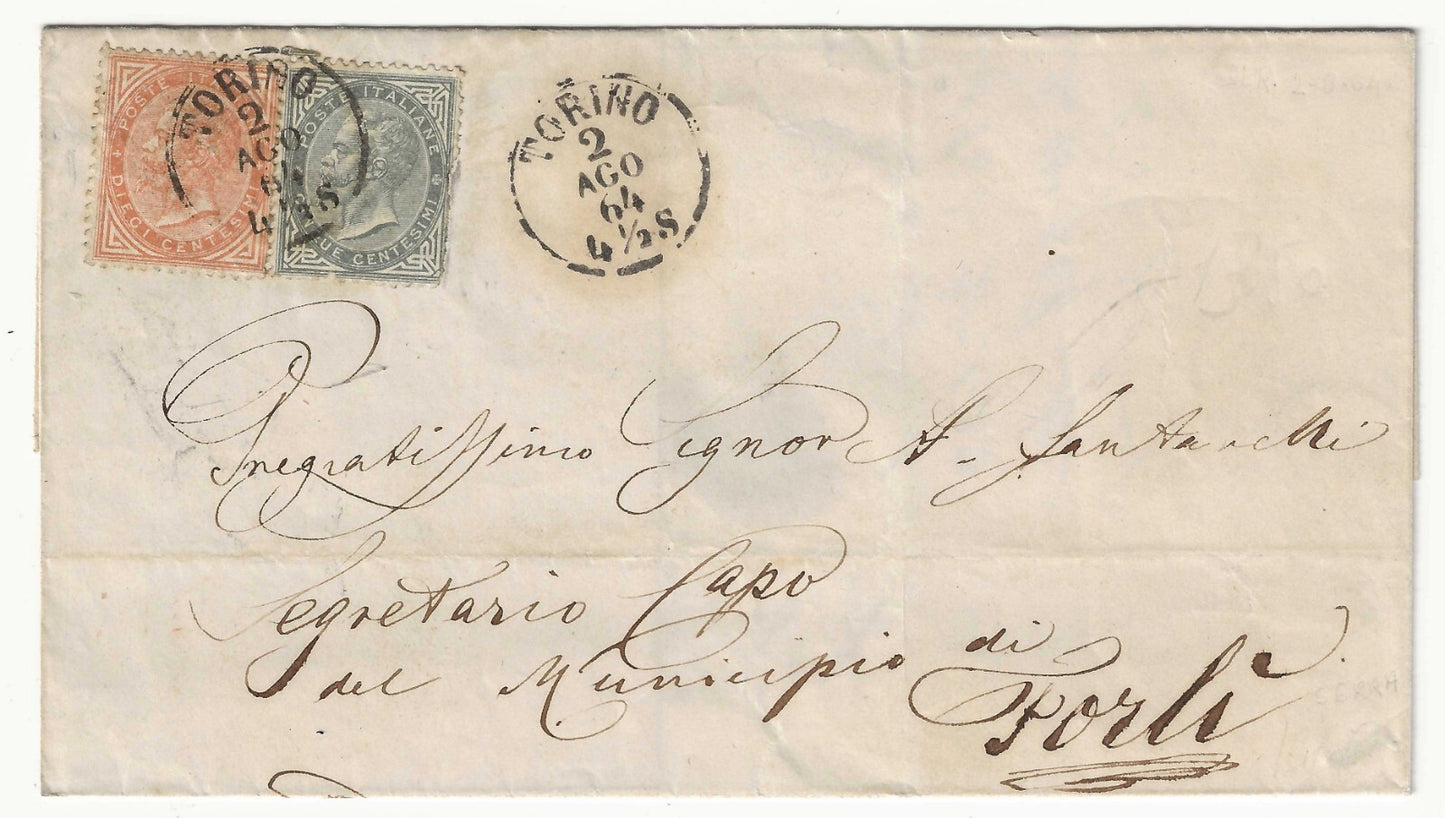 POSTE ITALIANE
DIECI CENTESIMI
POSTE ITALIANE
DUE CENTESIMI
TORINO
2
AGO
64
4 1/2 S
TORINO
2
AGO
64
4 1/2 S
Pregiatissimo Signor A. Santarelli
Segretario Capo
del Municipio di
Forlì